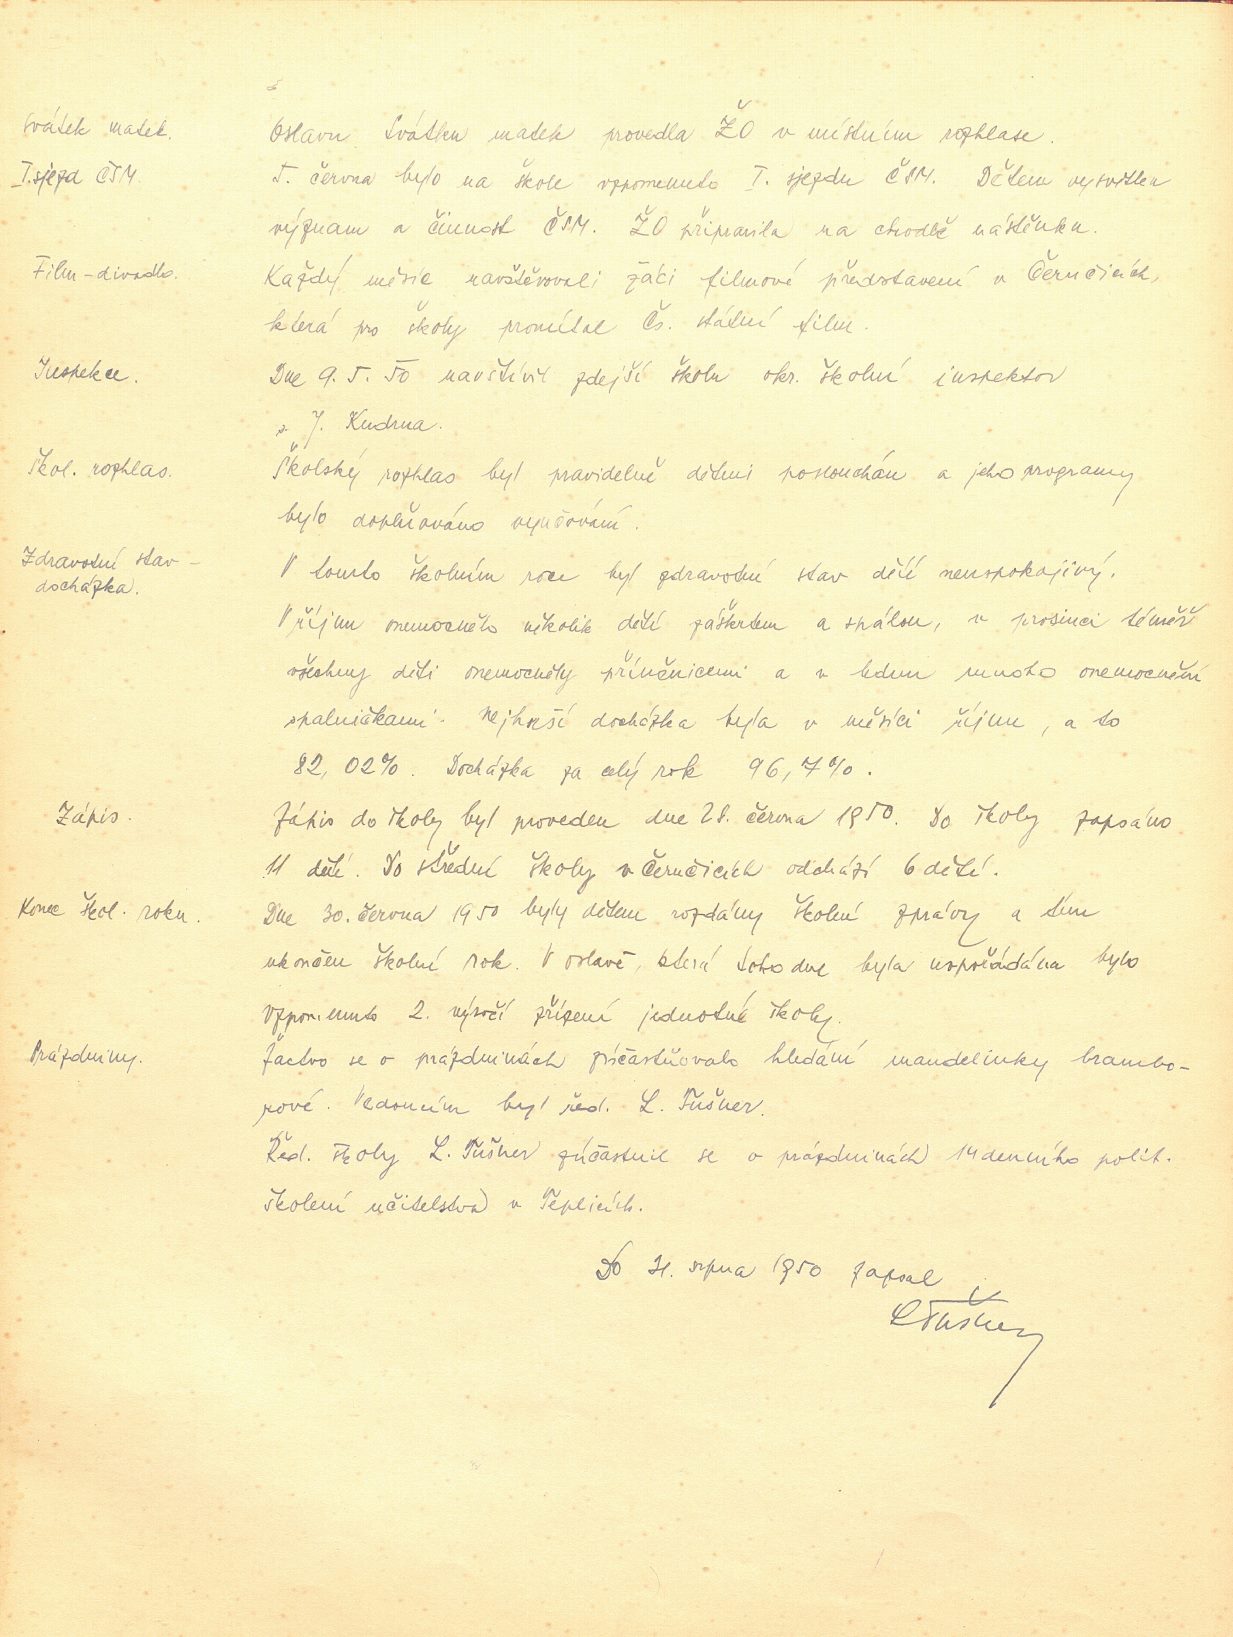 Svátek matek.
Oslavu Svátku matek provedla ŽO v místním rozhlase.
I. sjezd ČSM
5. června bylo na škole vzpomenuto I. sjezdu ČSM. Dětem vysvětlen
význam a činnost ČSM. ŽO připravila na chodbě nástěnku.
Film – divadlo.
Každý měsíc navštěvovali žáci filmové představení v Černčicích,
která pro školy promítal Čs. státní film.
Inspekce.
Dne 9. 5. 50 navštívil zdejší školu okr. školní inspektor
s. J. Kudrna.
Škol. rozhlas.
Školský rozhlas byl pravidelně dětmi poslouchán a jeho programy
bylo doplňováno vyučování.
Zdravotní stav –
docházka.
V tomto školním roce byl zdravotní stav dětí neuspokojivý.
V říjnu onemocnělo několik dětí záškrtem a spálou, v prosinci téměř
všechny děti onemocněly příušnicemi a v lednu mnoho onemocnění
spalničkami. Nejhorší docházka byla v měsíci říjnu, a to
82,02%. Docházka za celý rok 96,7%.
Zápis.
Zápis do školy byl proveden dne 28. června 1950. Do školy zapsáno
11 dětí. Do střední školy v Černčicích odchází 6 dětí.
Konec škol. roku.
Dne 30. června 1950 byly dětem rozdány školní zprávy a tím
ukončen školní rok. V oslavě, která toho dne byla uspořádána bylo
vzpomenuto 2. výročí zřízení jednotné školy.
Prázdniny.
Žactvo se o prázdninách zúčastňovalo hledání mandelinky brambo-
rové. Vedoucím byl řed. L. Tušner.
Řed. školy L. Tušner zúčastnil se o prázdninách 14denního polit.
školení učitelstva v Teplicích.
Do 31. srpna 1950 zapsal
LTušner